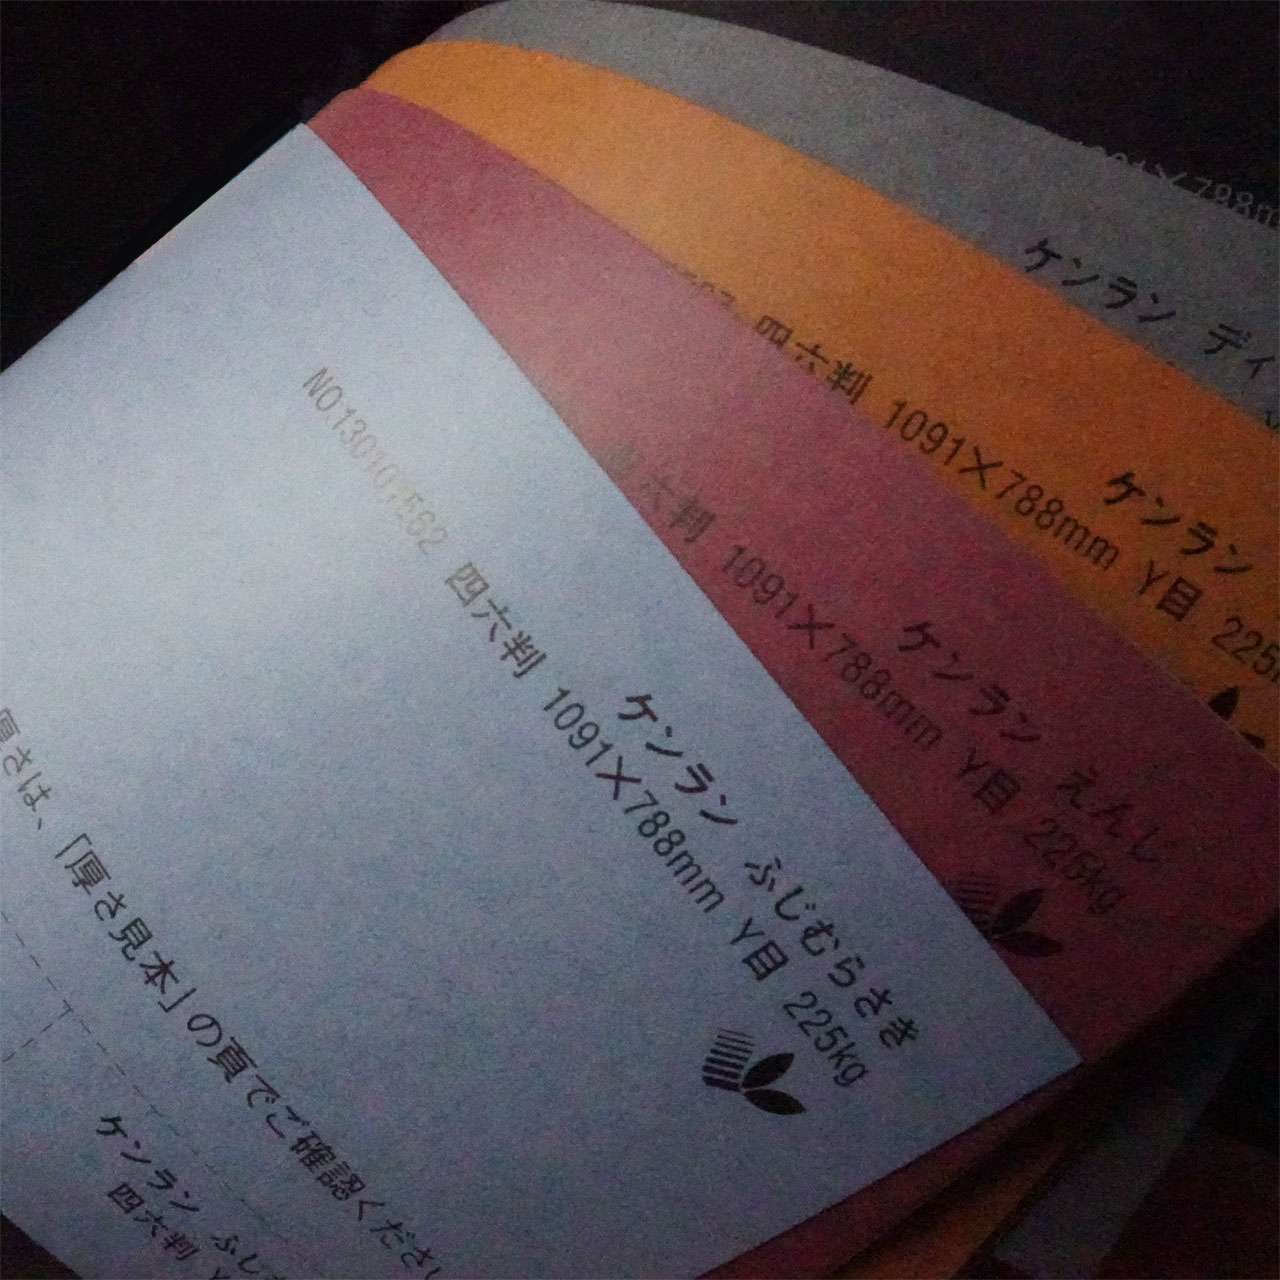 1091×788m
ケンラン ディ
ケンラン
四六判 1091×788mm Y目 225k
ケンラン えんじ
六判 1091×788mm Y目 225kg
ケンラン ふじむらさき
NO130101562 四六判 1091×788mm Y目 225kg
厚さは、「厚さ見本」の頁でご確認ください
ケンラン ふじ
四六判 Y